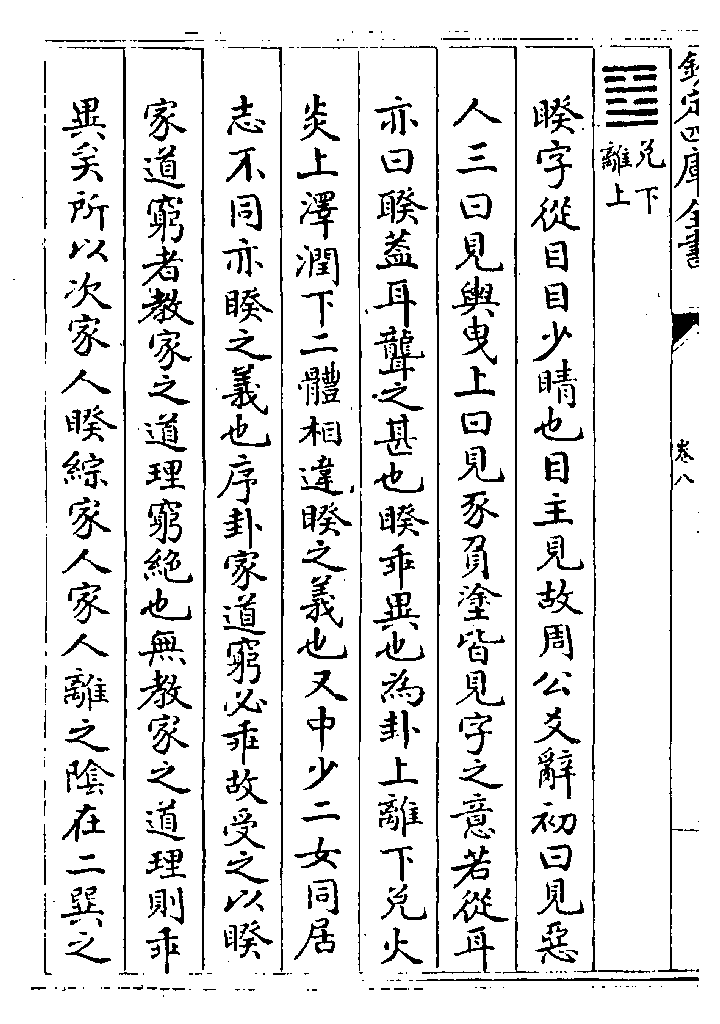 欽定四庫全書
卷八
兌下
離上
睽字從目目少睛也目主見故周公爻辭初曰見惡
人三曰見輿曳上曰見豕負塗皆見字之意若從耳
亦曰聧葢耳聾之甚也睽乖異也為卦上離下兌火
炎上澤潤下二體相違睽之義也又中少二女同居
志不同亦睽之義也序卦家道窮必乖故受之以睽
家道窮者教家之道理窮絶也無教家之道理則乖
異矣所以次家人睽綜家人家人離之陰在二巽之